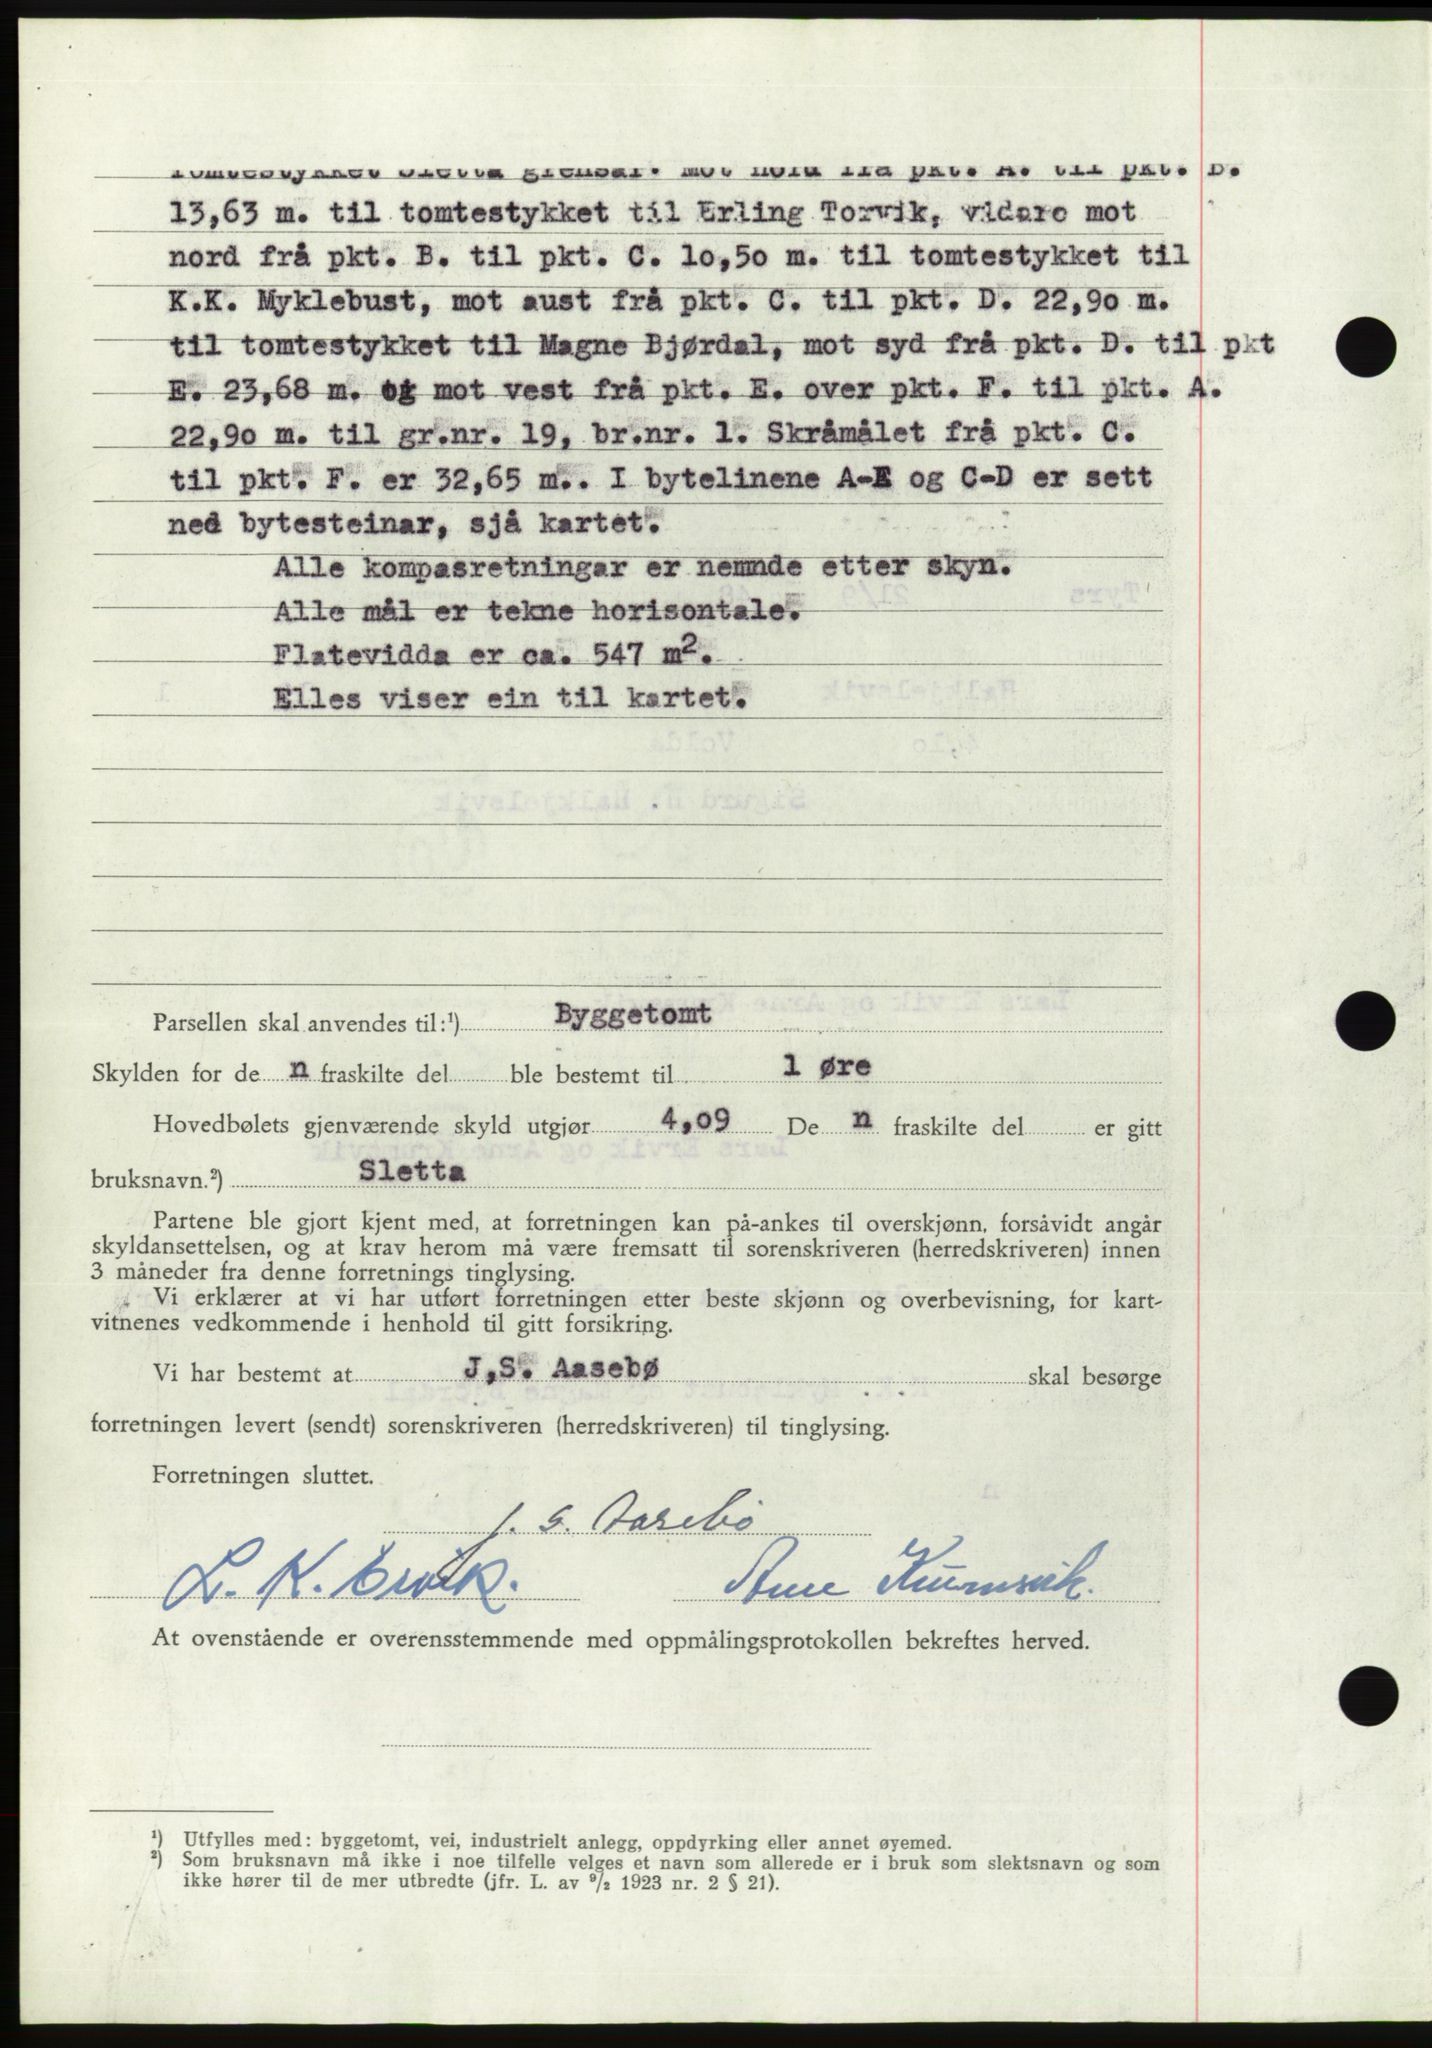 Tomtestykket Sletta grensar: Mot nord frå pkt. A. til pkt. B.
13,63 m. til tomtestykket til Erling Torvik, vidare mot
nord frå pkt. B. til pkt. C. 10,50 m. til tomtestykket til
K.K. Myklebust, mot aust frå pkt. C. til pkt. D. 22,90 m.
til tomtestykket til Magne Bjørdal, mot syd frå pkt. D. til pkt
E. 23,68 m. og mot vest frå pkt. E. over pkt. F. til pkt. A.
22,90 m. til gr.nr. 19, br.nr. 1. Skråmålet frå pkt. C.
til pkt. F. er 32,65 m.. I bytelinene A-E og C-D er sett
ned bytesteinar, sjå kartet.
Alle kompasretningar er nemnde etter skyn.
Alle mål er tekne horisontale.
Flatevidda er ca. 547 m².
Elles viser ein til kartet.
Parsellen skal anvendes til:¹) Byggetomt
Skylden for de n fraskilte del ble bestemt til 1 øre
Hovedbølets gjenværende skyld utgjør 4,09 De n fraskilte del er gitt
bruksnavn.²) Sletta
Partene ble gjort kjent med, at forretningen kan på-ankes til overskjønn, forsåvidt angår
skyldansettelsen, og at krav herom må være fremsatt til sorenskriveren (herredskriveren) innen
3 måneder fra denne forretnings tinglysing.
Vi erklærer at vi har utført forretningen etter beste skjønn og overbevisning, for kart-
vitnenes vedkommende i henhold til gitt forsikring.
Vi har bestemt at J.S. Aasebø skal besørge
forretningen levert (sendt) sorenskriveren (herredskriveren) til tinglysing.
Forretningen sluttet.
J. S. Aasebø
L. K. Ervik. Arne Krumsvik.
At ovenstående er overensstemmende med oppmålingsprotokollen bekreftes herved.
¹) Utfylles med: byggetomt, vei, industrielt anlegg, oppdyrking eller annet øyemed.
²) Som bruksnavn må ikke i noe tilfelle velges et navn som allerede er i bruk som slektsnavn og som
ikke hører til de mer utbredte (jfr. L. av ⁹/₂ 1923 nr. 2 § 21).